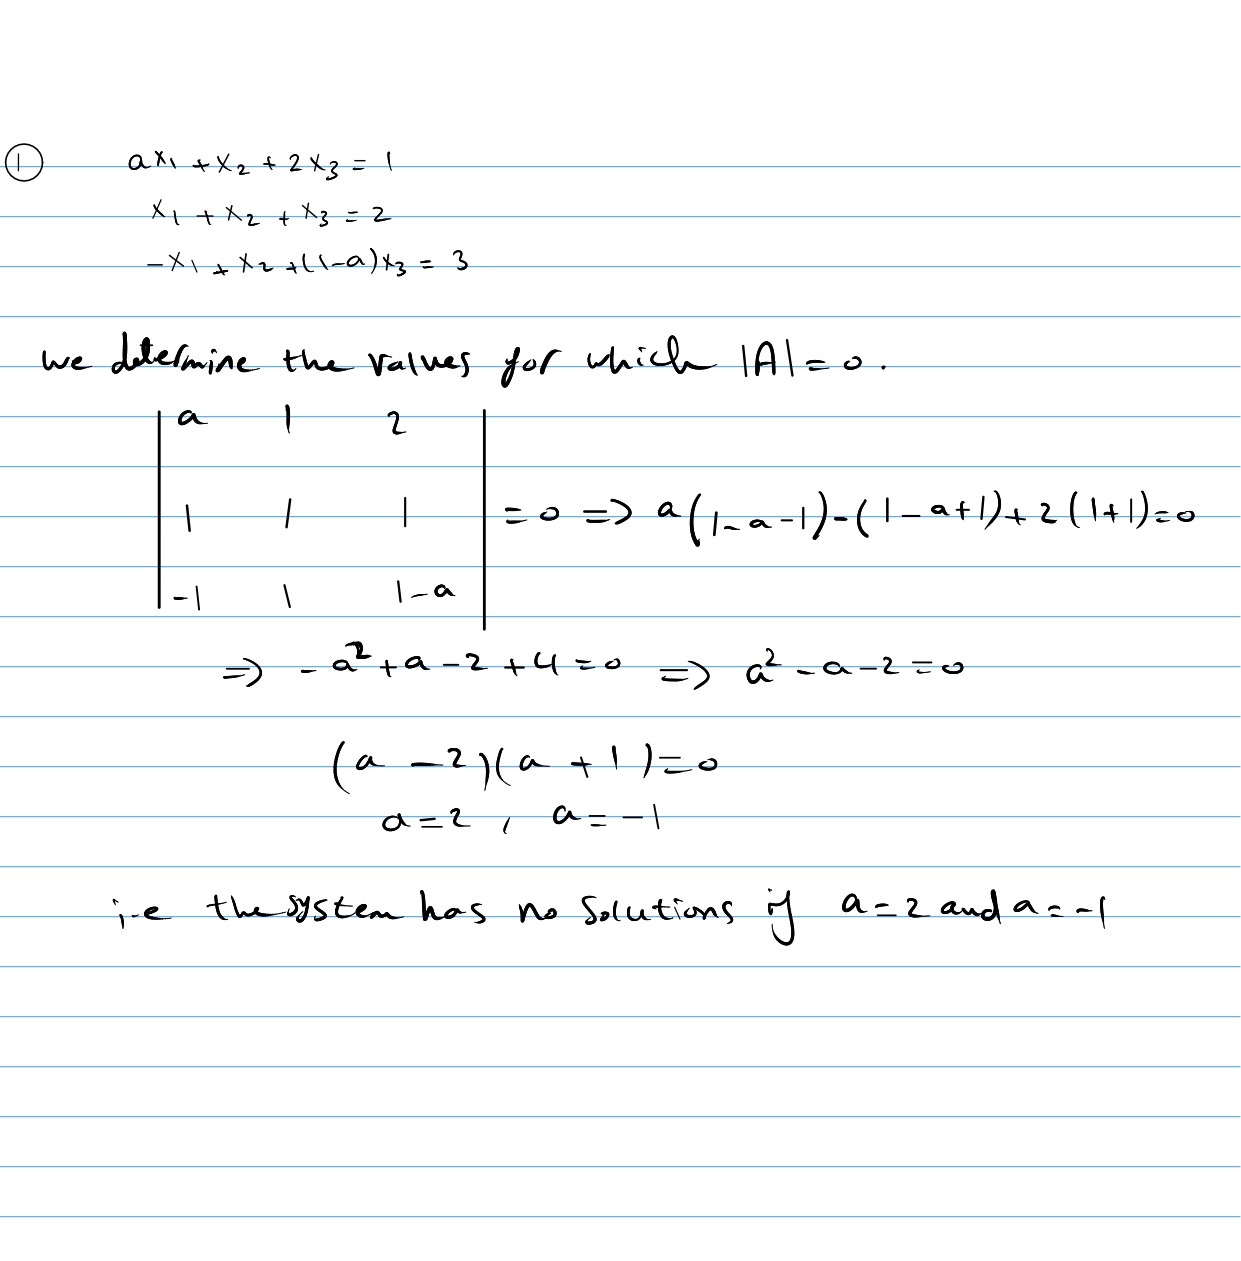 ① ax₁ + x₂ + 2x₃ = 1
x₁ + x₂ + x₃ = 2
-x₁ + x₂ + (1-a)x₃ = 3
we determine the values for which |A| = 0.
| a 1 2 |
| 1 1 1 | = 0 => a(1-a-1)-(1-a+1)+2(1+1)=0
| -1 1 1-a |
=> -a²+a-2+4=0 => a²-a-2=0
(a-2)(a+1)=0
a=2, a=-1
i.e the system has no solutions if a=2 and a=-1